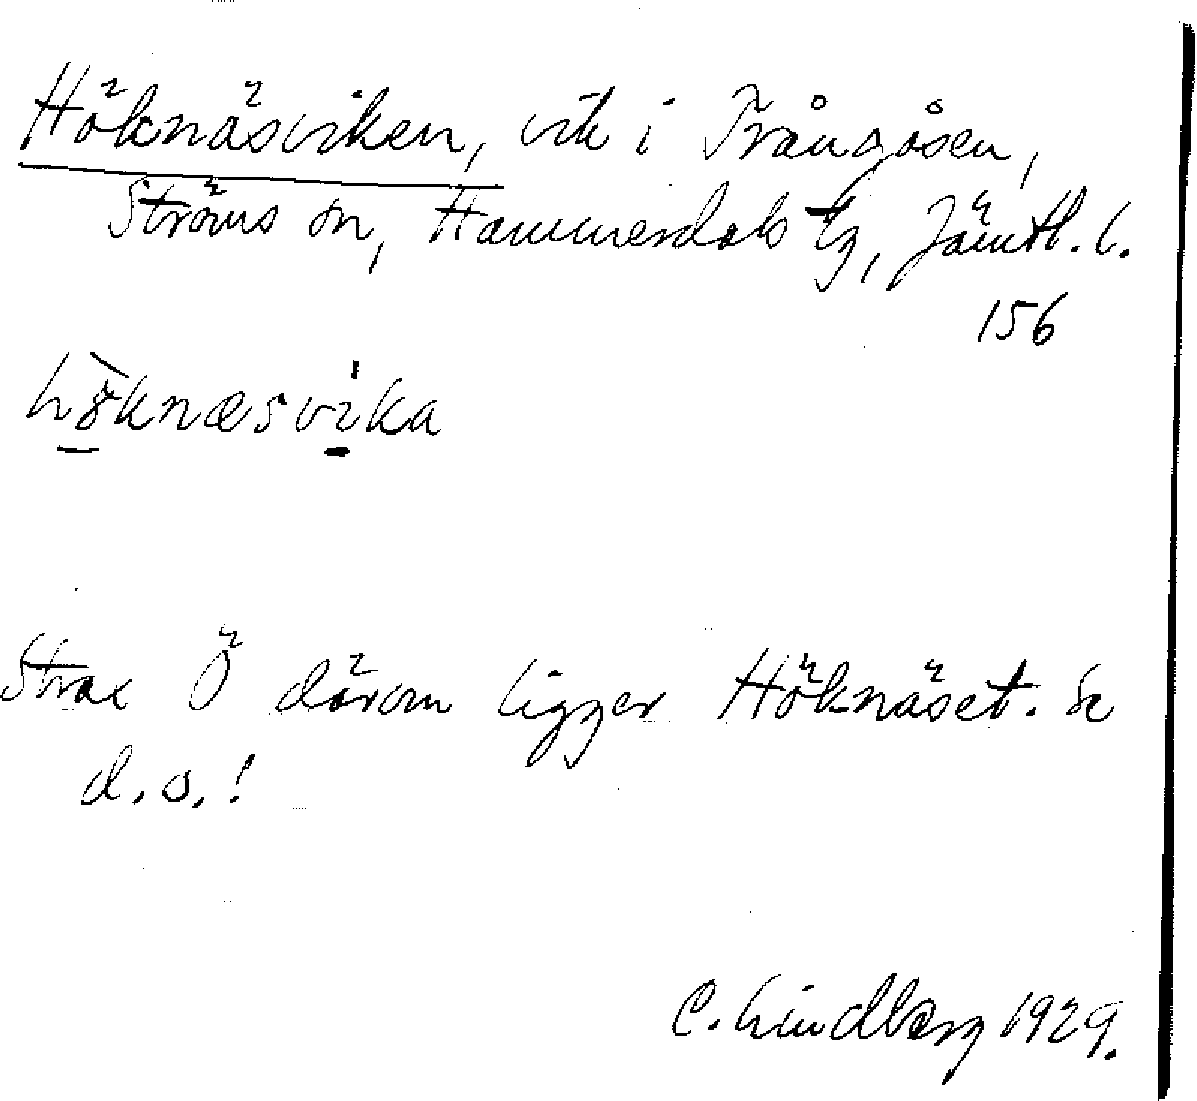 Höknäsviken, vik i Trångåsen,
Ströms sn, Hammerdals tg, Jämtl. l.
156
höknæsvika
Strax Ö därom ligger Höknäset. Se
d. o.!
C. Lindberg 1929.